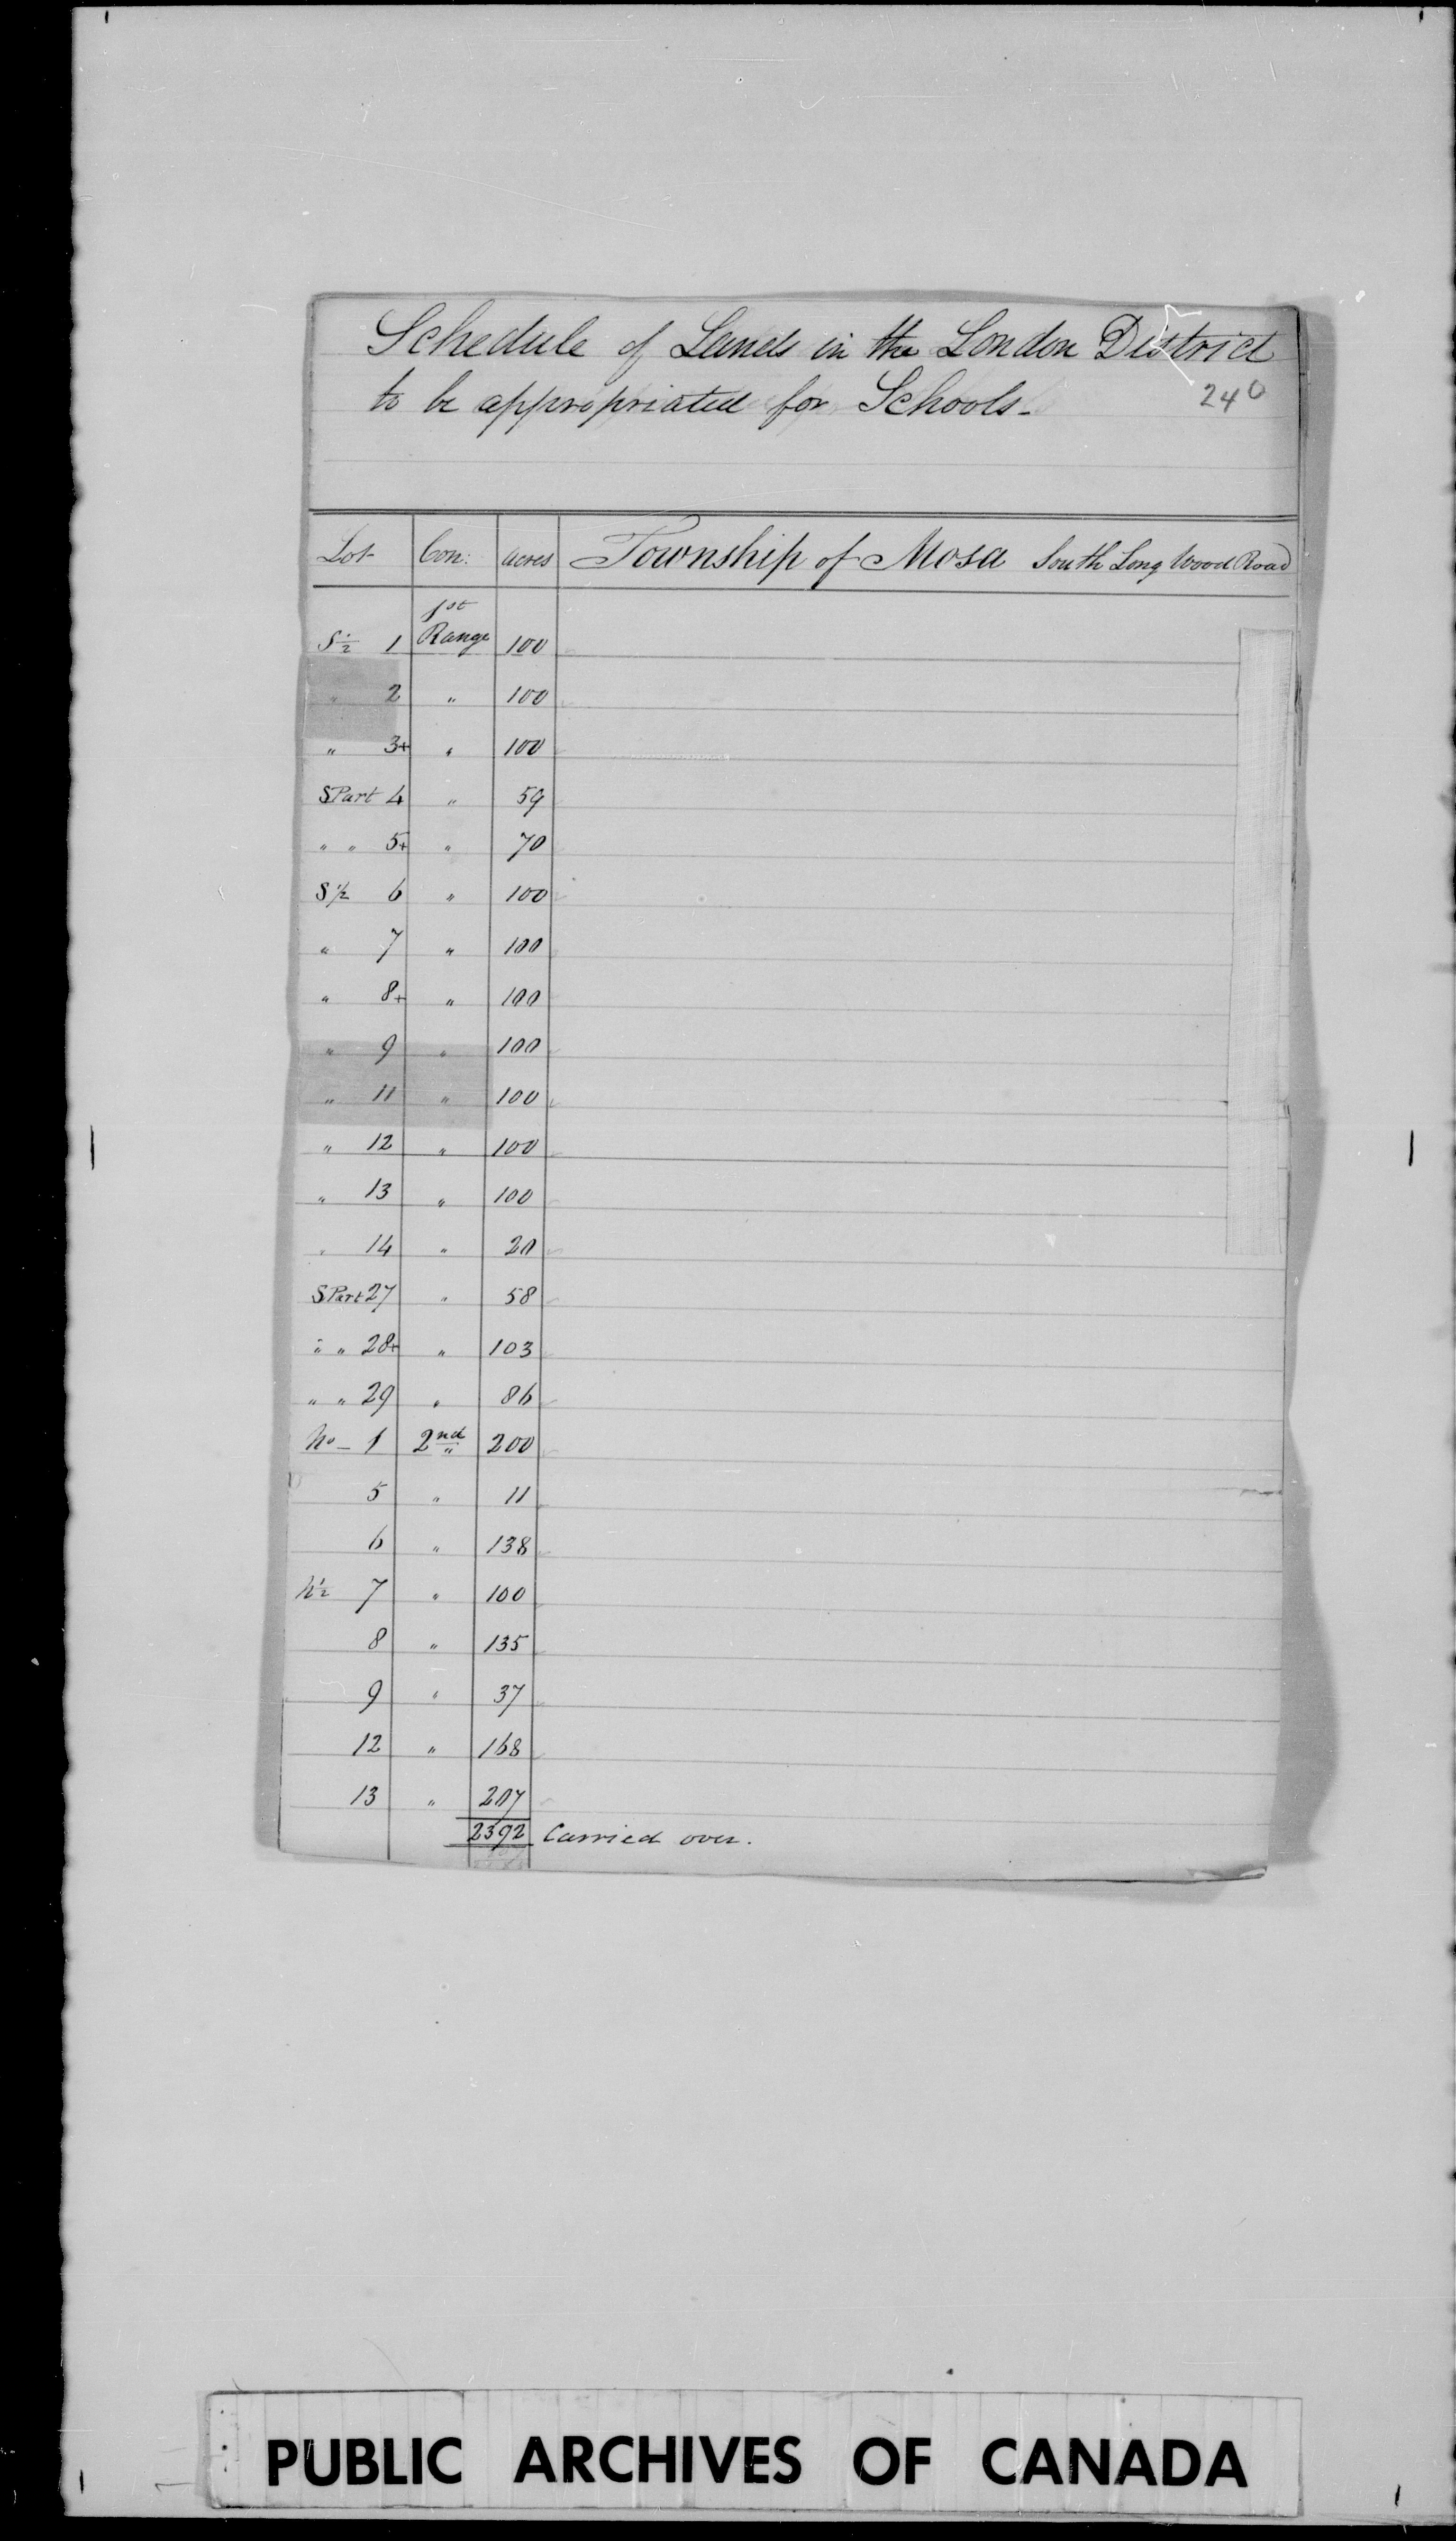 Schedule of Lands in the London District
to be appropriated for Schools -
240
Lot Con: acres Township of Mosa South Long Wood Road
S ½ 1 1st Range 100
" 2 " 100
" 3+ " 100
S Part 4 " 59
" " 5+ " 70
S ½ 6 " 100
" 7 " 100
" 8+ " 100
" 9 " 100
" 11 " 100
" 12 " 100
" 13 " 100
" 14 " 20
S Part 27 " 58
" " 28+ " 103
" " 29 " 86
No - 1 2nd " 200
5 " 11
6 " 138
N ½ 7 " 100
8 " 135
9 " 37
12 " 168
13 " 207
2392 Carried over.
PUBLIC ARCHIVES OF CANADA